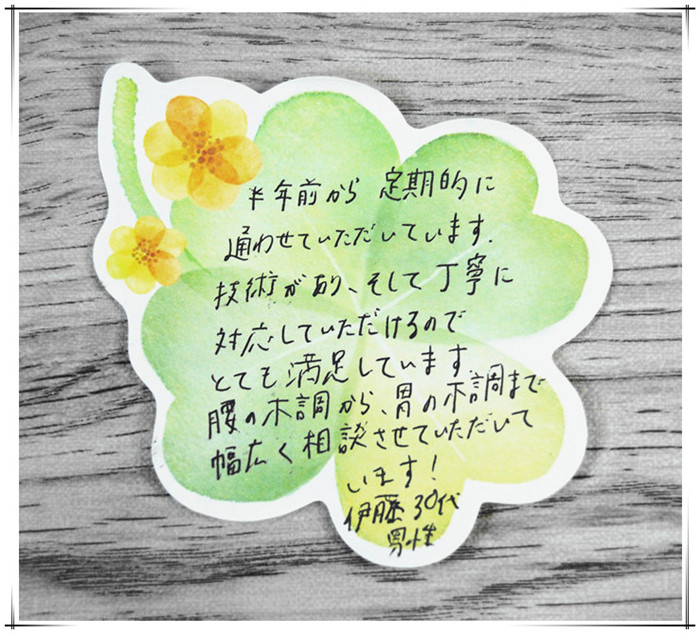 半年前から 定期的に
通わせていただいています.
技術があり、そして丁寧に
対応していただけるので
とても満足しています.
腰の不調から、胃の不調まで
幅広く相談させていただいて
います!
伊藤 30代
男性